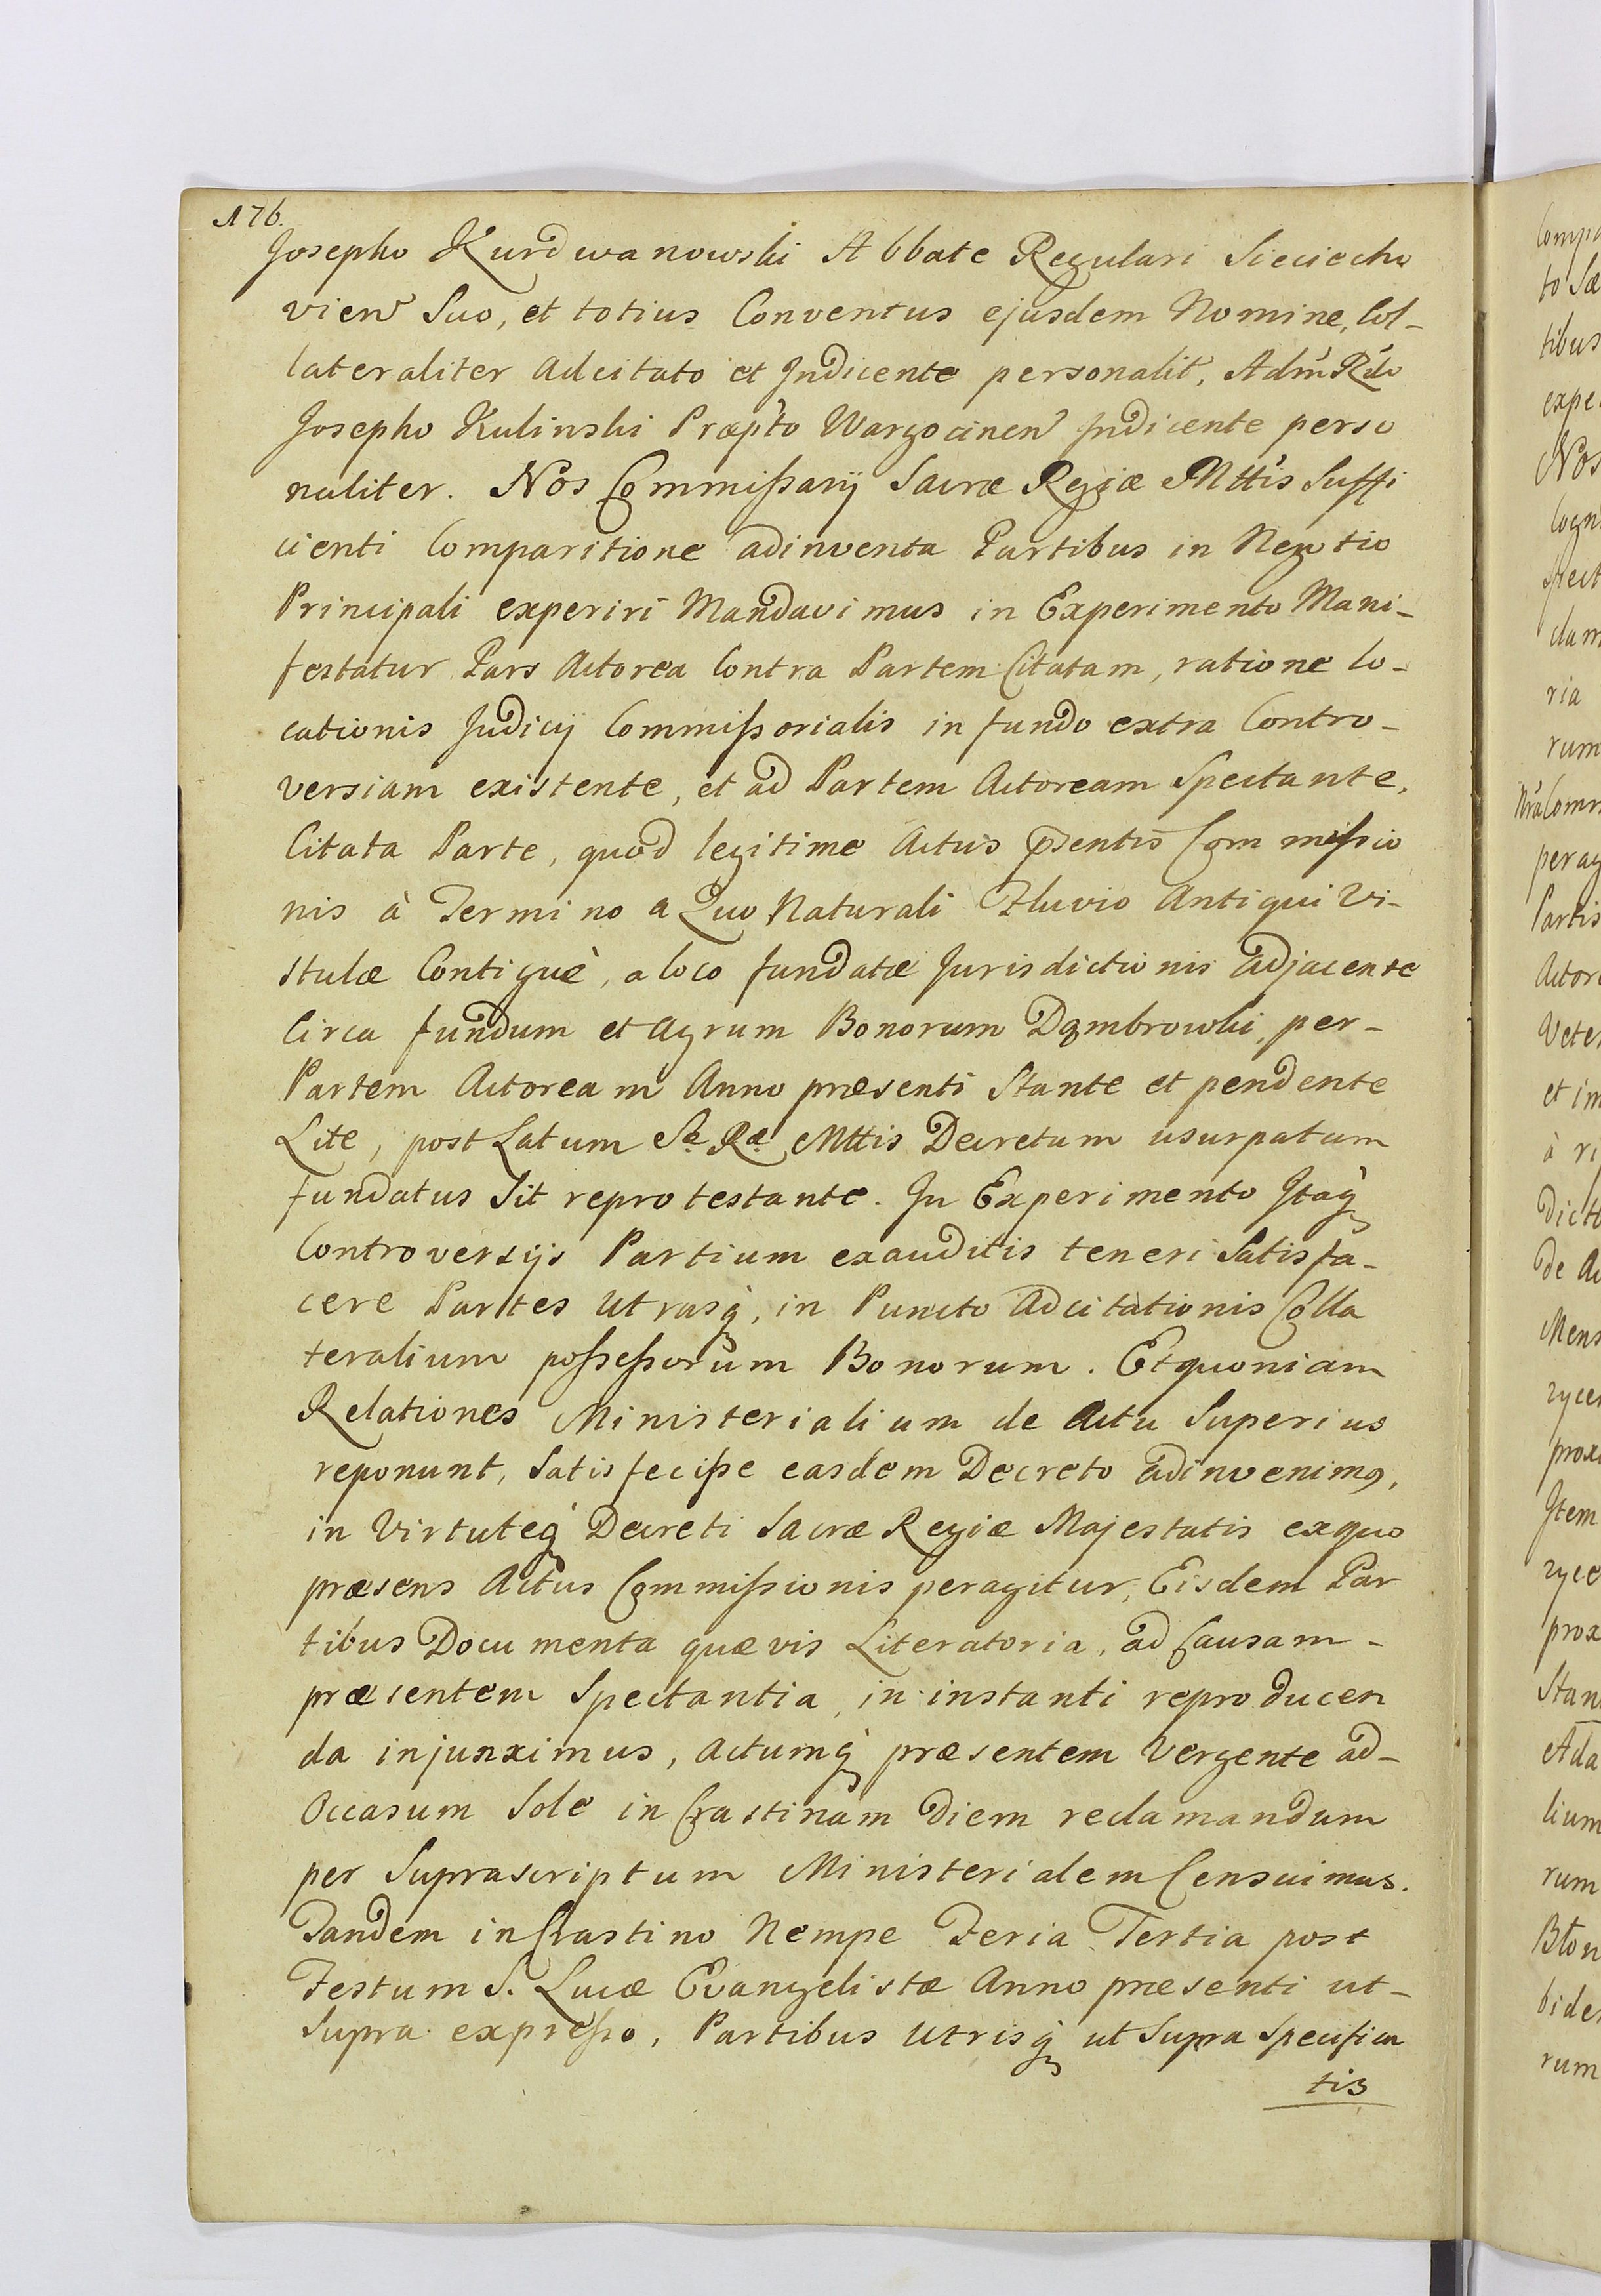 176.
Josepho Kurdwanowski Abbate Regulari Sieciecho
vien Suo, et totius Conventus ejusdem Nomine, Col-
lateraliter Adcitato et Indicente personalit, Adm Rdo
Josepho Kulinski Præpto Wargocinen Indicente perso
naliter. Nos Commißarij Sacræ Regiæ Mttis Suffi
cienti Comparitione adinventa Partibus in Negotio
Principali experiri Mandavimus in Experimento Mani-
festatur Pars Actorea Contra Partem Citatam, ratione lo-
cationis Judicij Commißorialis in fundo extra Contro-
versiam existente, et ad Partem Actoream Spectante,
Citata Parte, quod legitime Actus pntis Commißio
nis à Termino a Quo Naturali Fluvio Antiqui Vi-
stulæ Contiguè, a loco fundatæ Jurisdictionis adjacente
Circa fundum et Agrum Bonorum Dąmbrowki, per-
Partem Actoream Anno præsenti Stante et pendente
Lite, post Latum Sæ Ræ Mttis Decretum usurpatum
fundatus Sit reprotestante. In Experimento Itaq
Controversijs Partium exauditis teneri Satisfa-
cere Partes Utrasq, in Puncto Adcitationis Colla
teralium poßeßorum Bonorum. Et quoniam
Relationes Ministerialium de Actu Superius
reponunt, Satisfeciße easdem Decreto adinvenimꝯ,
in Virtuteq Decreti Sacræ Regiæ Majestatis ex quo
præsens Actus Commißionis peragitur, Eisdem Par
tibus Documenta quævis Literatoria, ad Causam-
præsentem Spectantia, in instanti reproducen
da injunximus, Actumq præsentem Vergente ad-
Occasum Sole in Crastinam Diem reclamandum
per Suprascriptum Ministerialem Censuimus.
Tandem in Crastino Nempe Feria Tertia post
Festum S. Lucæ Evangelistæ Anno præsenti ut-
Supra expreßo, Partibus Utrisq ut Supra Specifica
tis